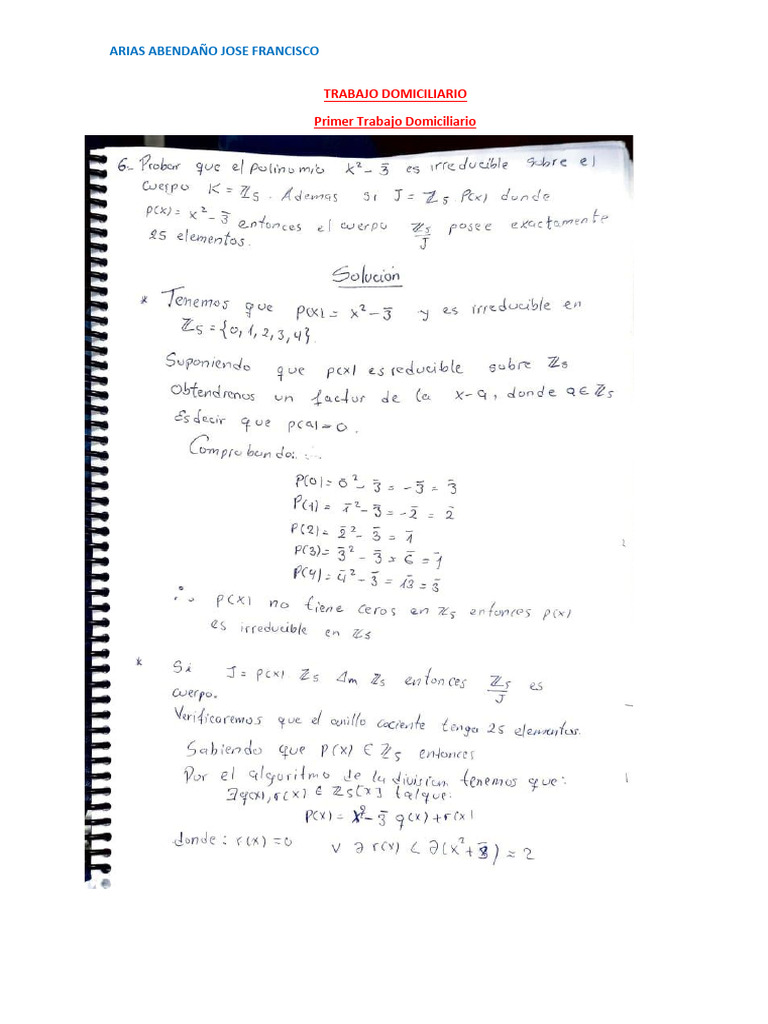 ARIAS ABENDAÑO JOSE FRANCISCO
TRABAJO DOMICILIARIO
Primer Trabajo Domiciliario
6.- Probar que el polinomio x² - 3̄ es irreducible sobre el
cuerpo K = ℤ₅. Ademas si J = ℤ₅ P(x) donde
p(x) = x² - 3̄ entonces el cuerpo ℤ₅/J posee exactamente
25 elementos.
Solución
* Tenemos que p(x) = x² - 3̄ y es irreducible en
ℤ₅ = {0, 1, 2, 3, 4}.
Suponiendo que p(x) es reducible sobre ℤ₅
Obtendrenos un factor de la x-a, donde a ∈ ℤ₅
Es decir que p(a) = 0.
Comprobando: ...
P(0) = 0̄² - 3̄ = -3̄ = 3̄
P(1) = 1̄² - 3̄ = -2̄ = 2̄
P(2) = 2̄² - 3̄ = 1̄
P(3) = 3̄² - 3̄ = 6̄ = 1̄
P(4) = 4̄² - 3̄ = 13 = 3̄
∴ p(x) no tiene ceros en ℤ₅ entonces p(x)
es irreducible en ℤ₅
* Si J = p(x) ℤ₅ Δm ℤ₅ entonces ℤ₅/J es
cuerpo.
Verificaremos que el anillo cociente tenga 25 elementos.
Sabiendo que p(x) ∈ ℤ₅ entonces
Por el algoritmo de la division tenemos que:
∃q(x), r(x) ∈ ℤ₅[x] talque:
p(x) = x² - 3̄ q(x) + r(x)
donde: r(x) = 0 ∨ ∂ r(x) < ∂(x² + 3̄) = 2